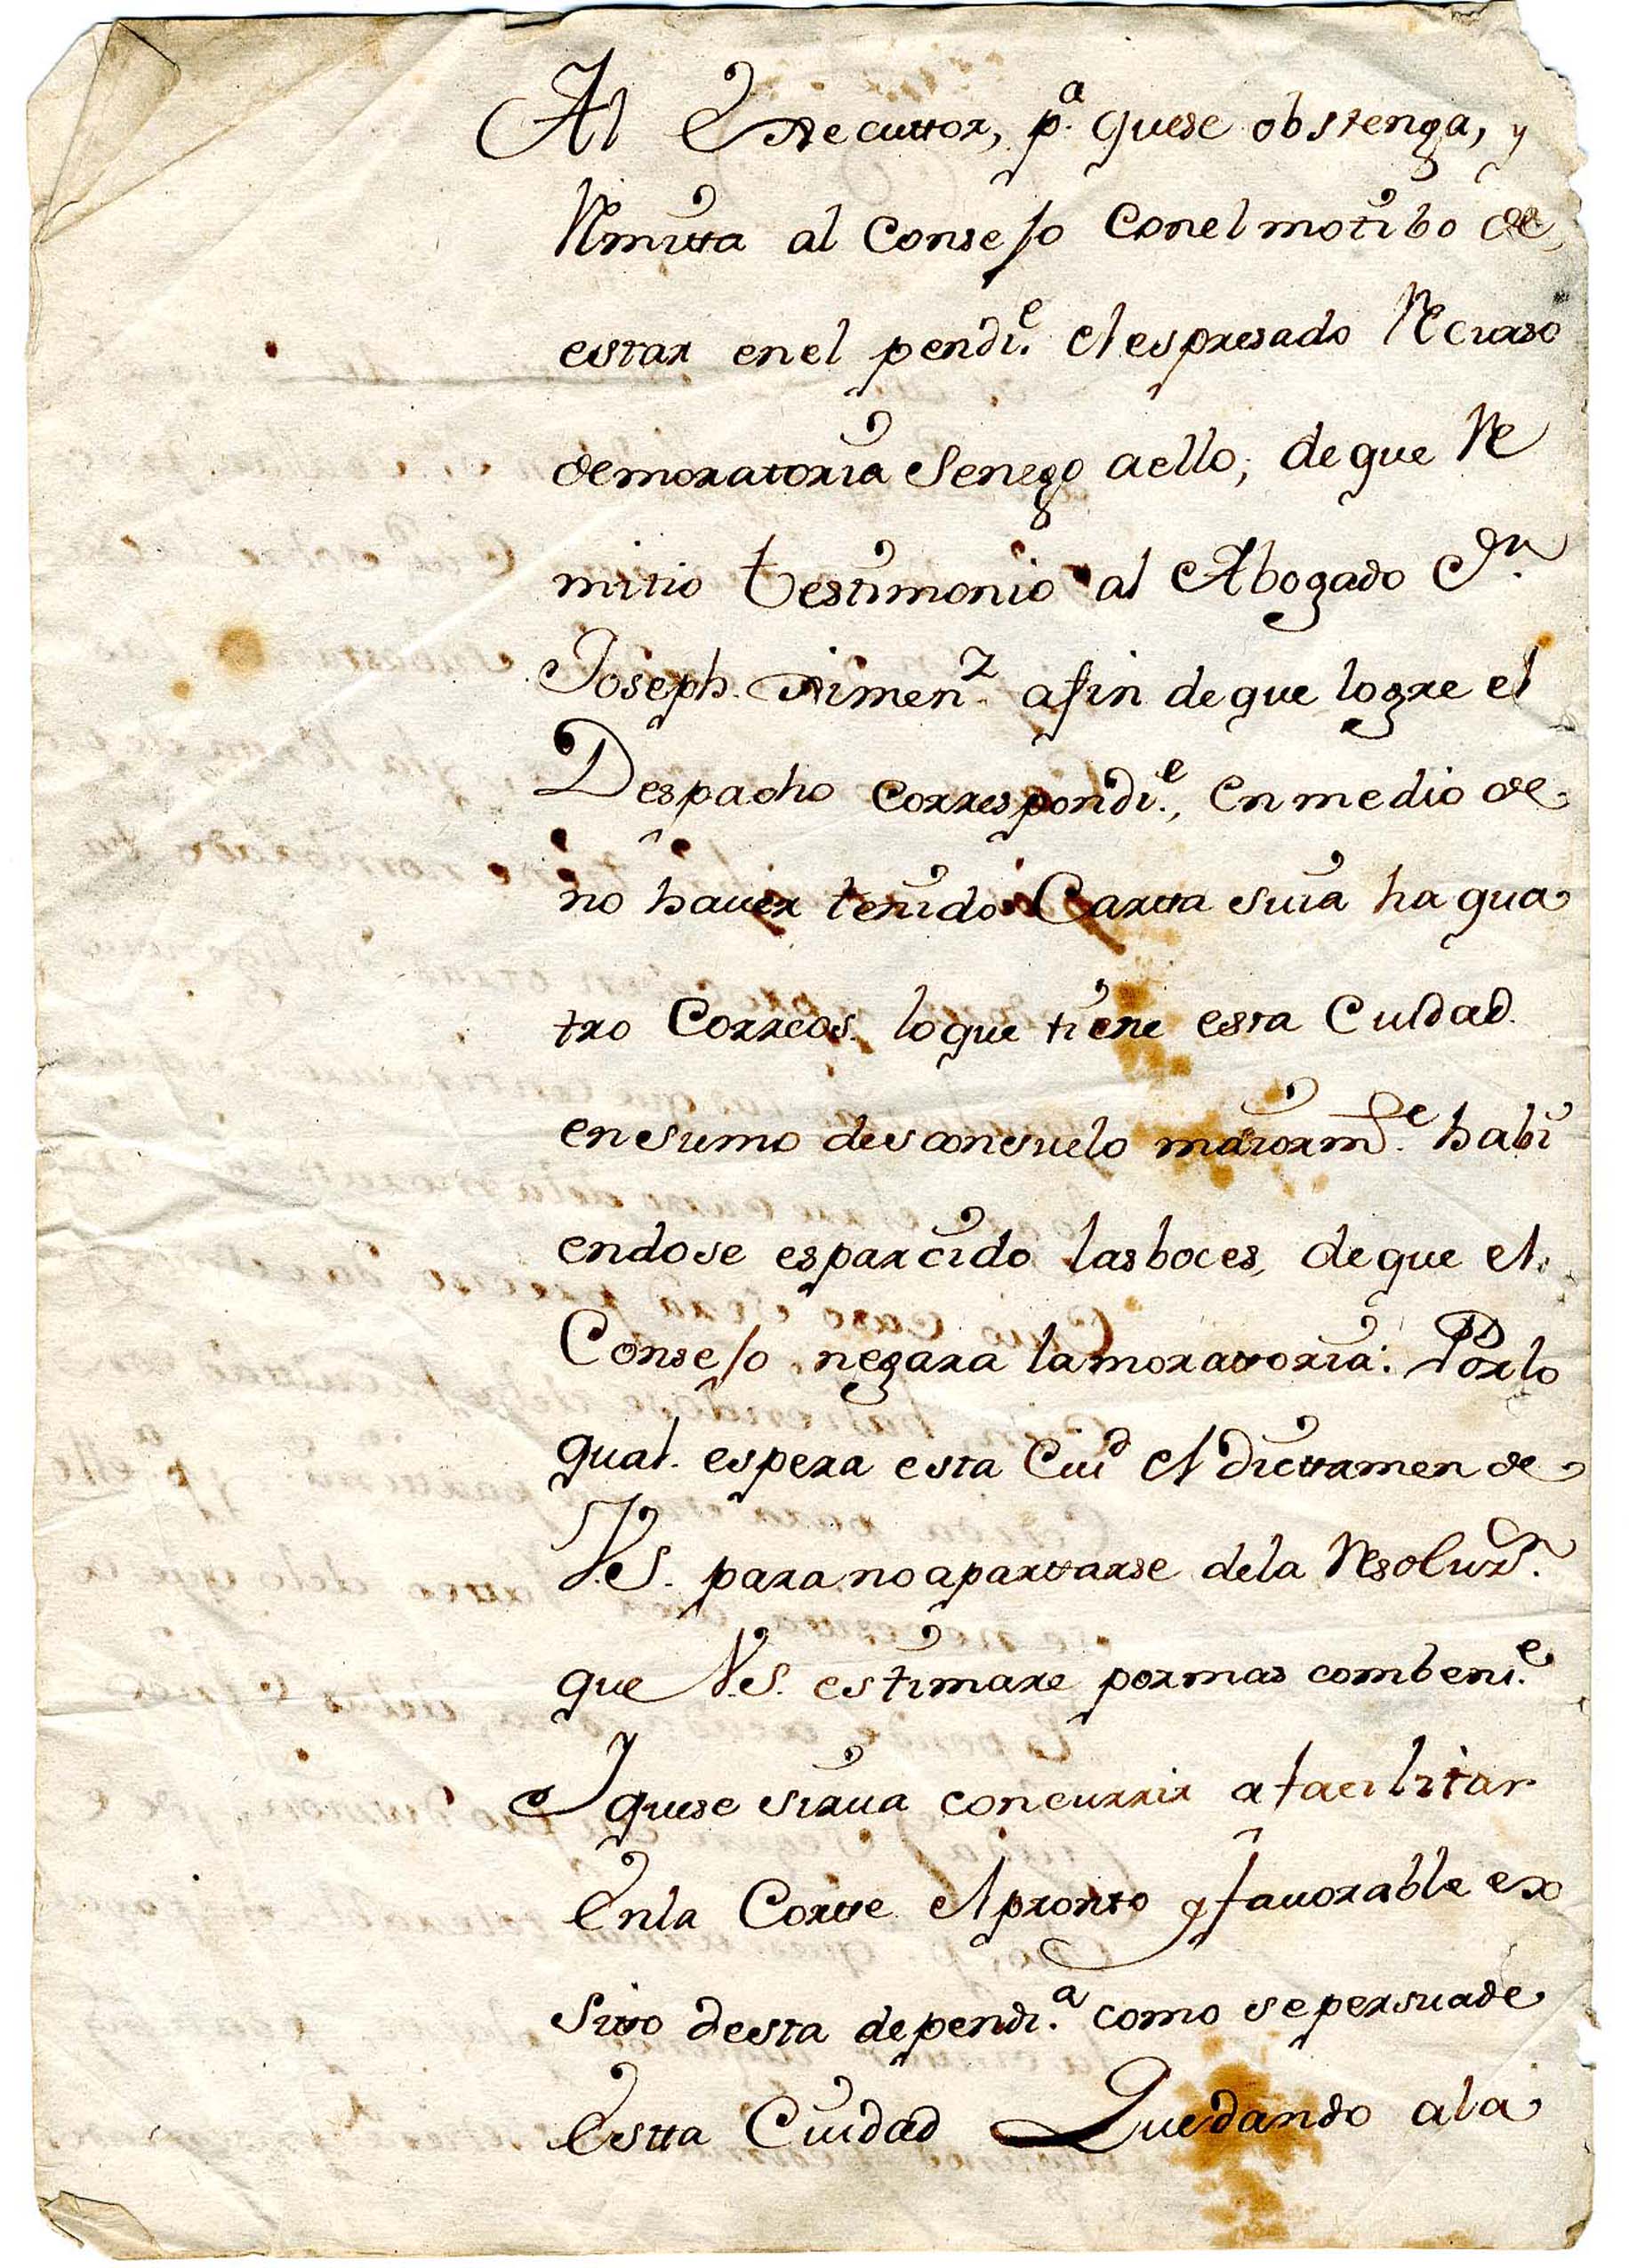 Al Executtor, pª. quese obstenga, y
Remitta al Consejo Conel motibo de
estar enel pendi.ᵉ el espresado Recurso
demoratoria Senego aello, deque Re
mitio testimonio al Abogado Dⁿ.
Joseph Ximen.ᶻ afin deque logre el
Despacho correspondi.ᵉ, en medio de
no hauer tenido Cartta suia ha qua
tro Correos. loque tiene esta Ciudad.
ensumo desconsuelo maiorm.ᵉ habi
endose esparcido lasboces, deque el
Consejo negara lamorattoria: Porlo
qual. espera esta Ciu.ᵈ el dicttamen de
V.S. parano aparttarse dela Resoluz.ⁿ
que V.S. estimare pormas combeni.ᵉ
Y quese sirua concurrir afacilitar
Enla Corte el pronto y fauorable ex
sitto desta dependi.ª como sepersuade
Estta Ciudad Quedando ala